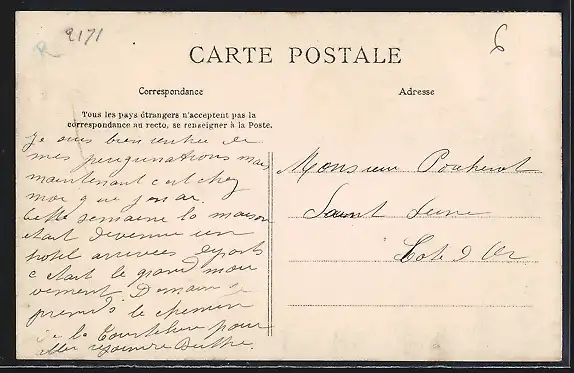 2171
6
CARTE POSTALE
Correspondance
Adresse
Tous les pays étrangers n'acceptent pas la
correspondance au recto, se renseigner à la Poste.
Je suis bien rentrée de
mes peregrinations mais
maintenant c est chez
moi que j en ai.
Cette semaine la maison
etait devenue un
hotel arrivées departs
c etait le grand mou
vement Demain je
prends le chemin
de la Courtelin pour
aller rejoindre Berthe.
Monsieur
Saint Seine
Cote d Or